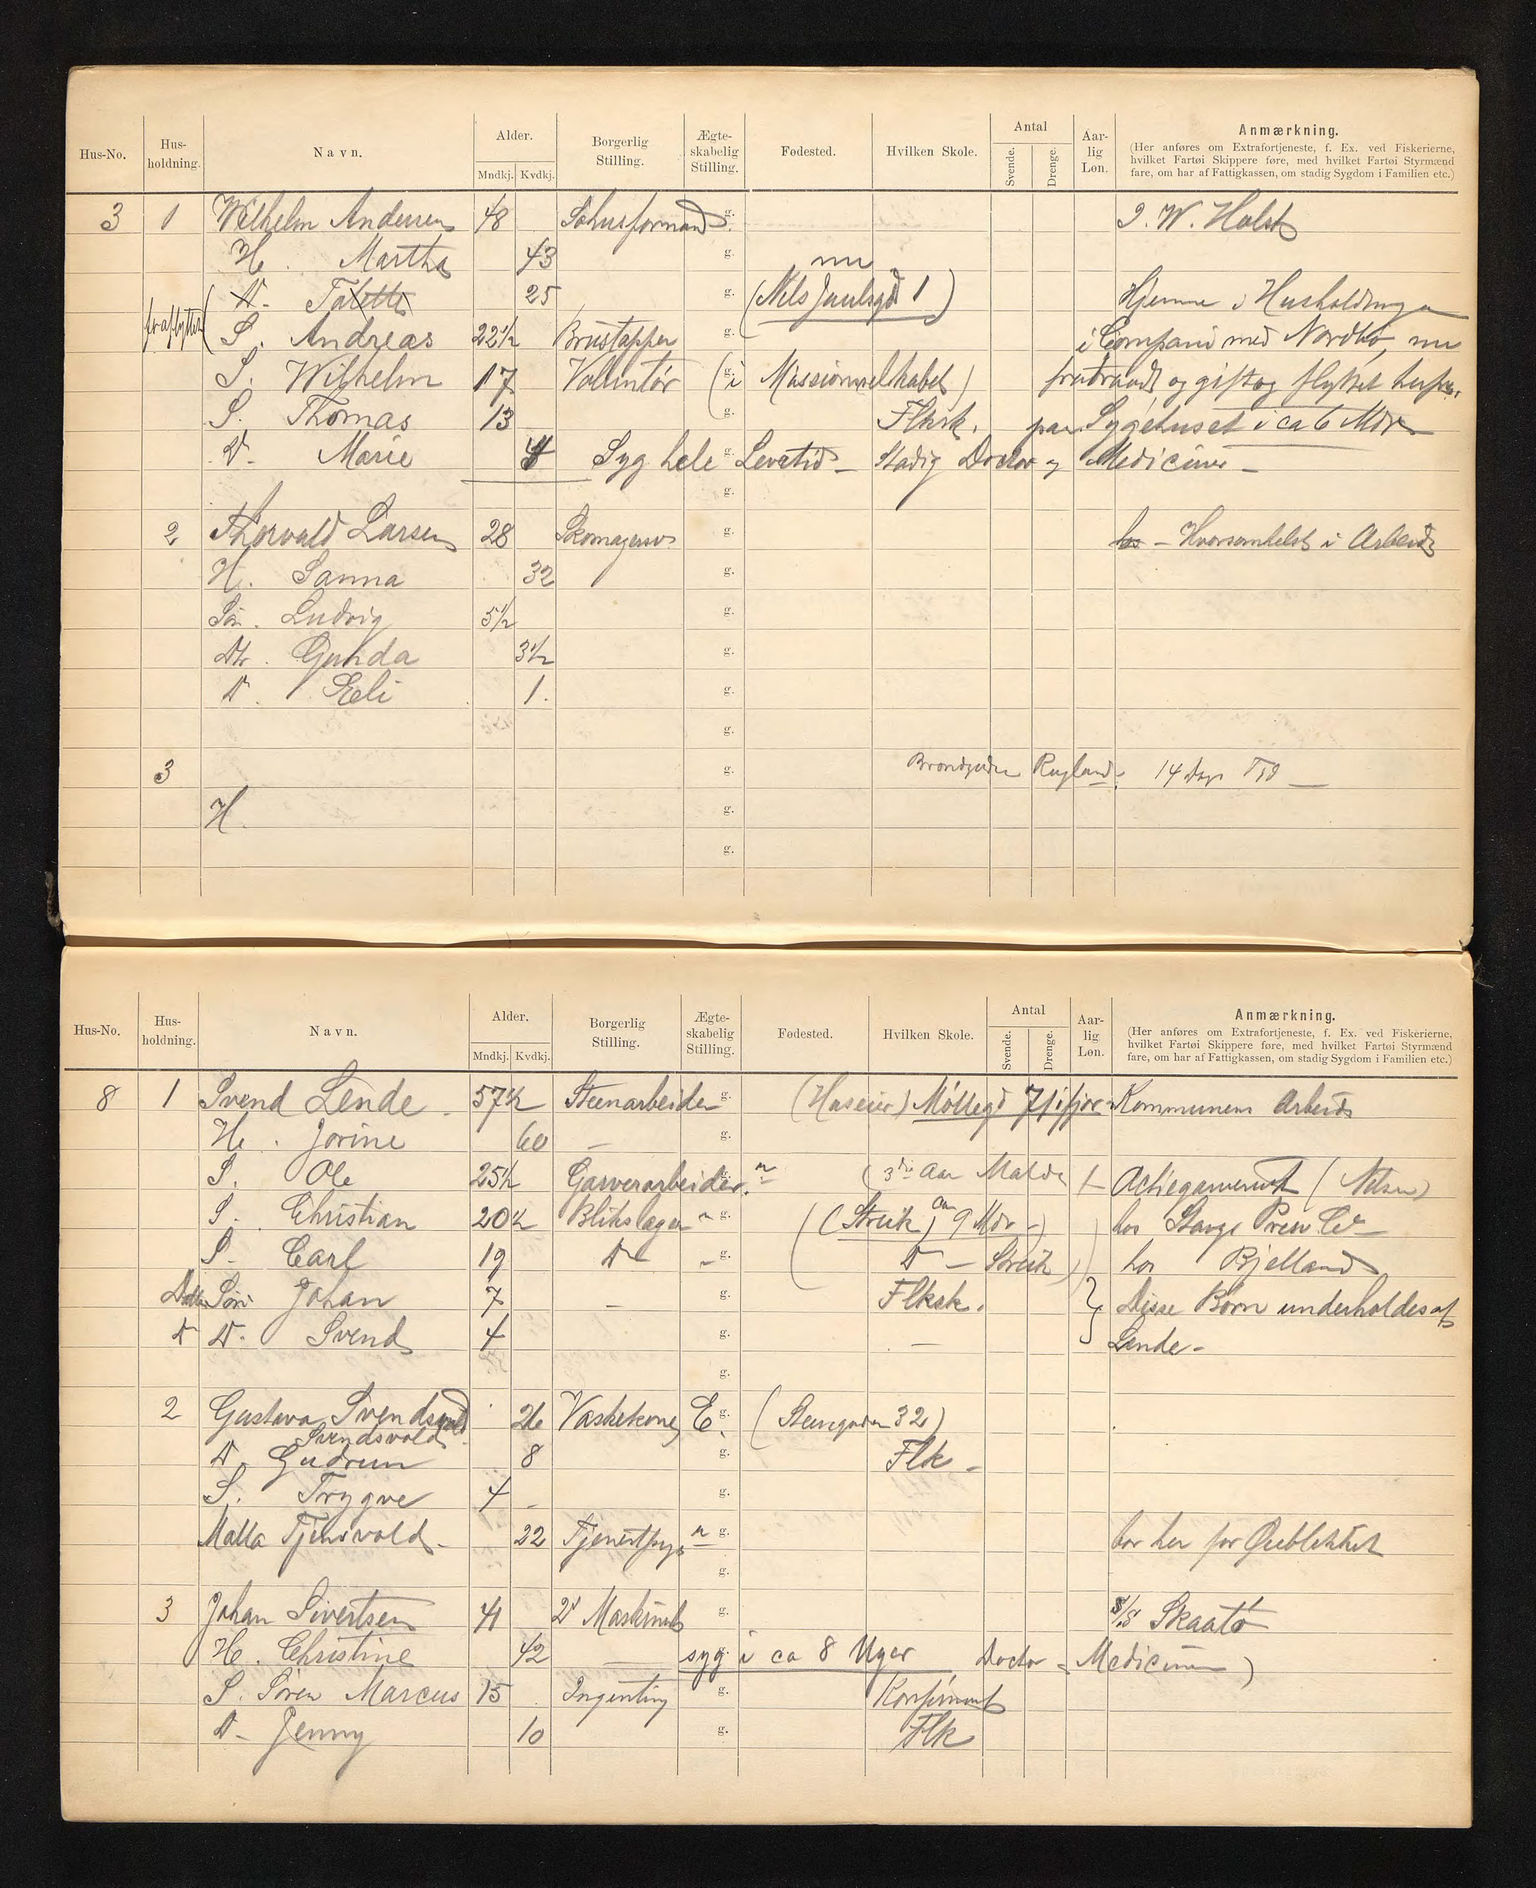 Hus-No. Hus-holdning. Navn. Alder. Mndkj. Kvdkj. Borgerlig Stilling. Ægte-skabelig Stilling. Fødested. Hvilken Skole. Antal Svende. Drenge. Aar-lig Løn. Anmærkning.
(Her anføres om Extrafortjeneste, f. Ex. ved Fiskerierne,
hvilket Fartøi Skippere føre, med hvilket Fartøi Styrmænd
fare, om har af Fattigkassen, om stadig Sygdom i Familien etc.)
3 1 Wilhelm Andersen 48 g. I. W. Holst
H. Martha 43 g. nu
D. Talette 25 g. (Nels Juulsgd 1) Hjemme i Husholdningen
fraflyttet ( S. Andreas 22½ g. i Compani med Nordbø, nu
S. Wilhelm 17 Volontør g. (i Missionsselskabet) og gift og flyttet herfra.
S. Thomas 13 g. Flksk. paa Sygehuset i ca 6 Mdr
D. Marie 4 Syg hele g. Levetid – Stadig Doctor og Mediciner –
g.
2 Thorvald Larsen 28 Skomagersv g. hos – Hvorsomhelst i Arbeid
H. Sanna 32 g.
Søn. Ludvig 5½ g.
Dtr. Gunda 3½ g.
D. Eli 1. g.
g.
3 g. Rugland 14 Dags Tid –
H. g.
g.
Hus-No. Hus-holdning. Navn. Alder. Mndkj. Kvdkj. Borgerlig Stilling. Ægte-skabelig Stilling. Fødested. Hvilken Skole. Antal Svende. Drenge. Aar-lig Løn. Anmærkning.
(Her anføres om Extrafortjeneste, f. Ex. ved Fiskerierne,
hvilket Fartøi Skippere føre, med hvilket Fartøi Styrmænd
fare, om har af Fattigkassen, om stadig Sygdom i Familien etc.)
8 1 Svend Lende 57½ Steenarbeider g. (Huseier) Møllegd 71 ifjor – Kommunens Arbeid
H. Jorine 60 – g.
S. Ole 25½ Garverarbeider g. (3die Aar Malde) Actiegarveriet (Nilsen)
S. Christian 20½ Blikslager g. (Streik) ca 9 Mdr –) hos Stavgs Pres. Co –
S. Carl 19 D – g. D – Streik) hos Bjelland
Søn Johan 7 – g. Flksk. } Disse Børn underholdes af
D D. Svend 4 g. – Lende –
g.
2 Gustava Svendsvold 26 Vaskekone E. g. (Steengaden 32)
Svendsvold
D. Gudrun 8 g. Flk –
S. Trygve 4 – g.
Malla Tjensvold – 22 Tjenestpige g. bor her for Øieblikket
g.
3 Johan Sivertsen 41 2d Maskinist g. S/S Skaatø
H. Christine 42 – syg g. i ca 8 Uger Doctor – Mediciner)
S. Søren Marcus 15 Ingenting g. Konfirmert
D – Jenny 10 g. Flk